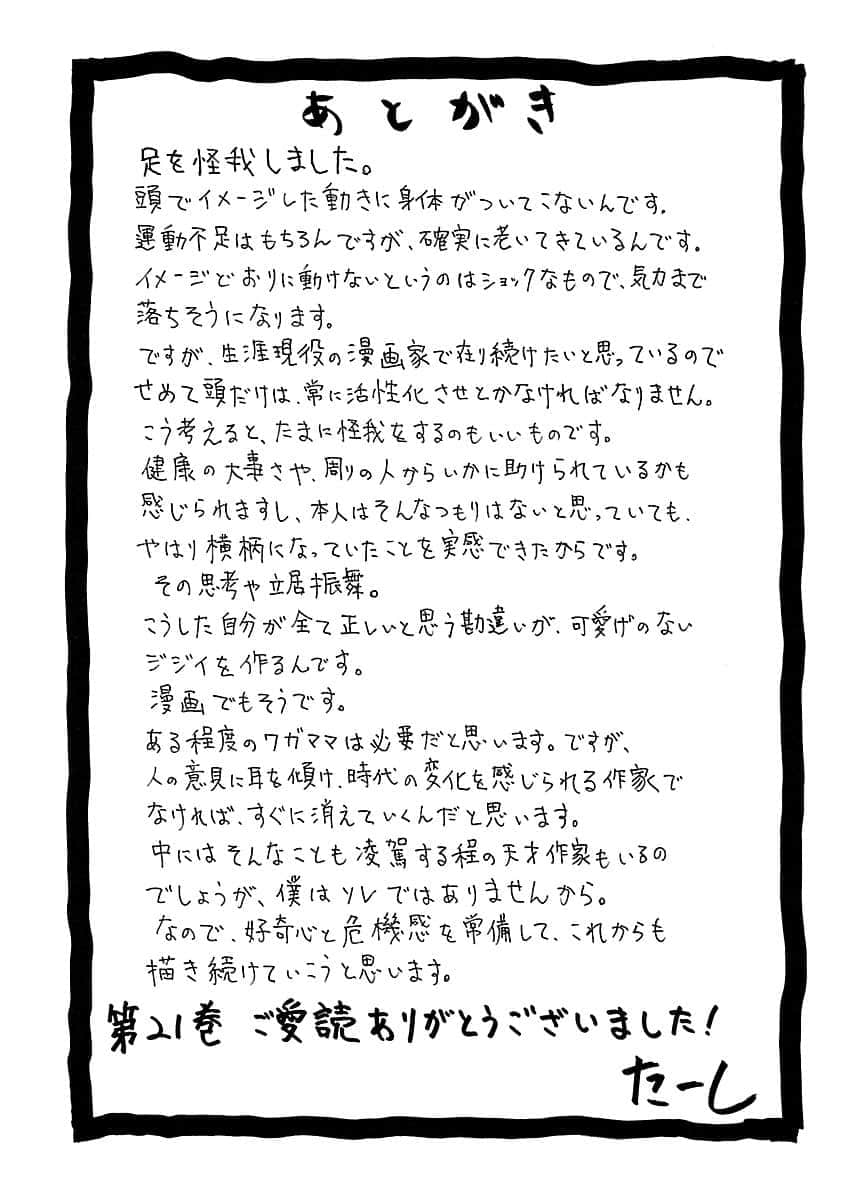 あとがき
足を怪我しました。
頭でイメージした動きに身体がついてこないんです.
運動不足はもちろんですが、確実に老いてきているんです.
イメージどおりに動けないというのはショックなもので、気力まで
落ちそうになります。
ですが、生涯現役の漫画家で在り続けたいと思っているので
せめて頭だけは、常に活性化させとかなければなりません。
こう考えると、たまに怪我をするのもいいものです。
健康の大事さや、周りの人からいかに助けられているかも
感じられますし、本人はそんなつもりはないと思っていても、
やはり横柄になっていたことを実感できたからです。
その思考や立居振舞。
こうした自分が全て正しいと思う勘違いが、可愛げのない
ジジイを作るんです。
漫画でもそうです。
ある程度のワガママは必要だと思います。ですが、
人の意見に耳を傾け、時代の変化を感じられる作家で
なければ、すぐに消えていくんだと思います。
中にはそんなことも凌駕する程の天才作家もいるの
でしょうが、僕はソレではありませんから。
なので、好奇心と危機感を常備して、これからも
描き続けていこうと思います。
第21巻 ご愛読ありがとうございました!
たーし